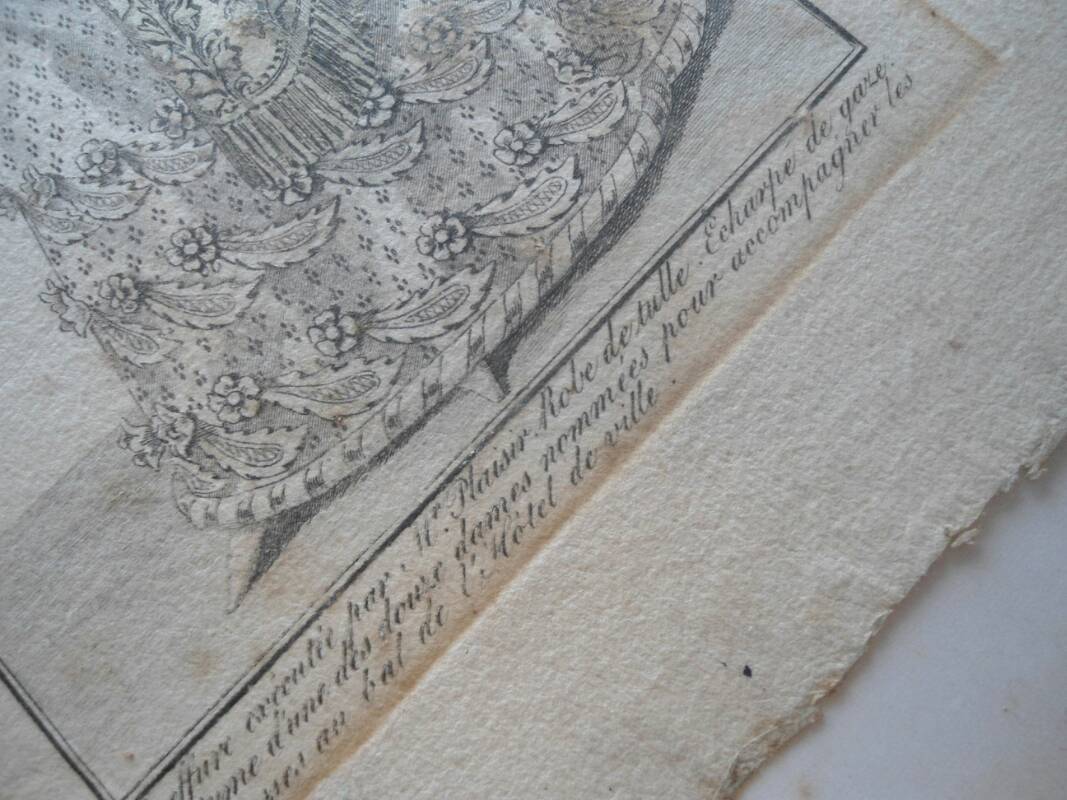 effure exécutée par Mr. Plaisir. Robe de tulle. Echarpe de gaze.
ume d'une des douze dames nommées pour accompagner les
sses au bal de l'Hôtel de ville.